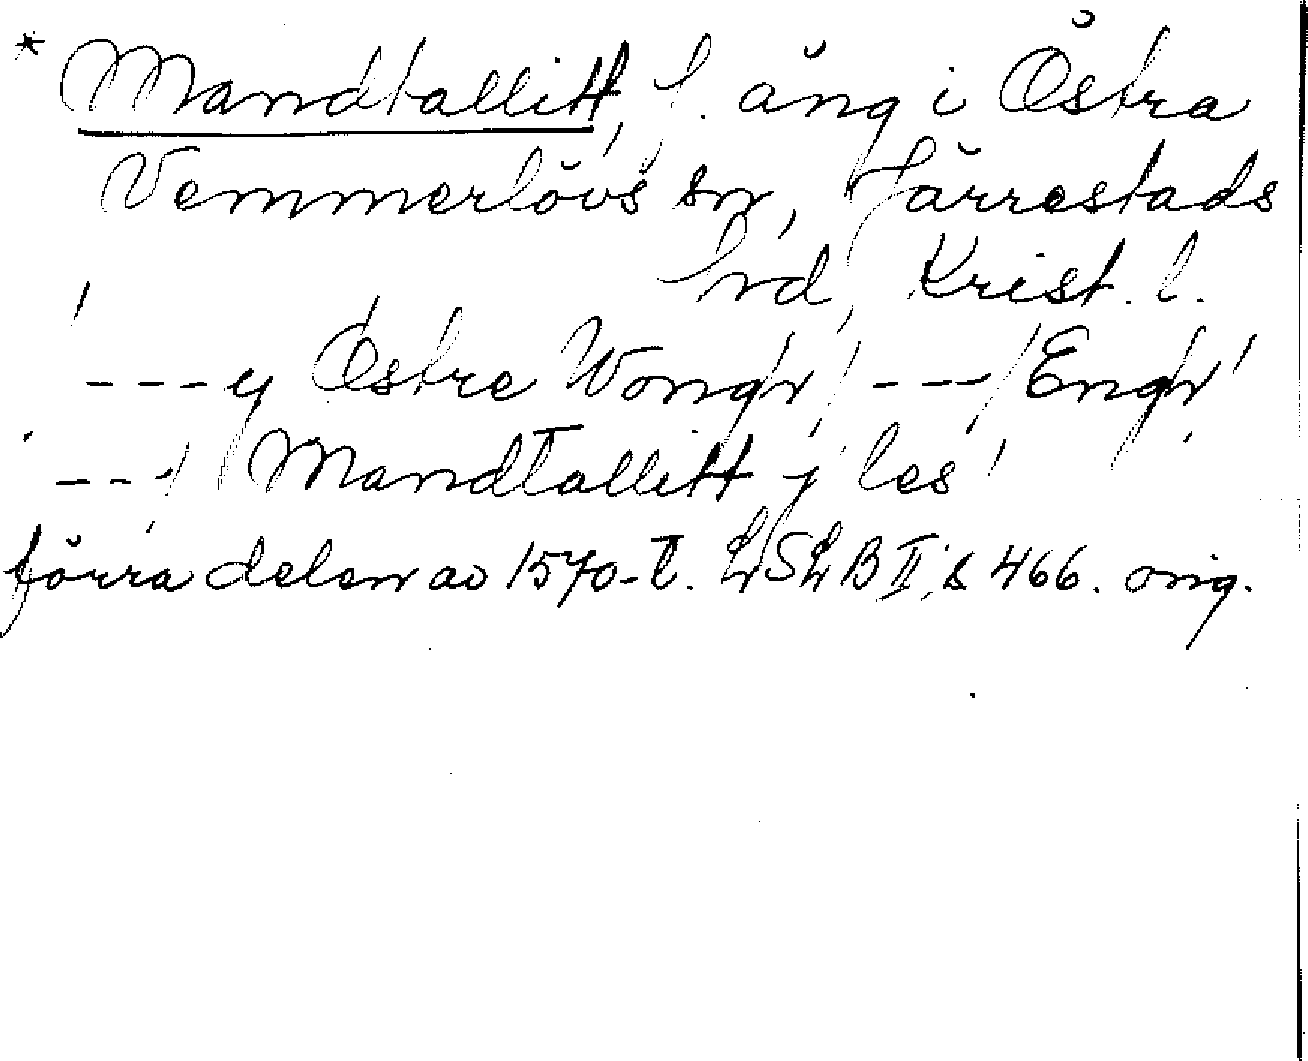 * Mandtallitt, f. äng i Östra
Vemmerlövs sn, Järrestads
hrd, Krist. l.
' --- y Østre Wongh / --- / Engh'
' --- / Mandtallitt j les'
förra delen av 1570-t. LSLB II, s 466. orig.